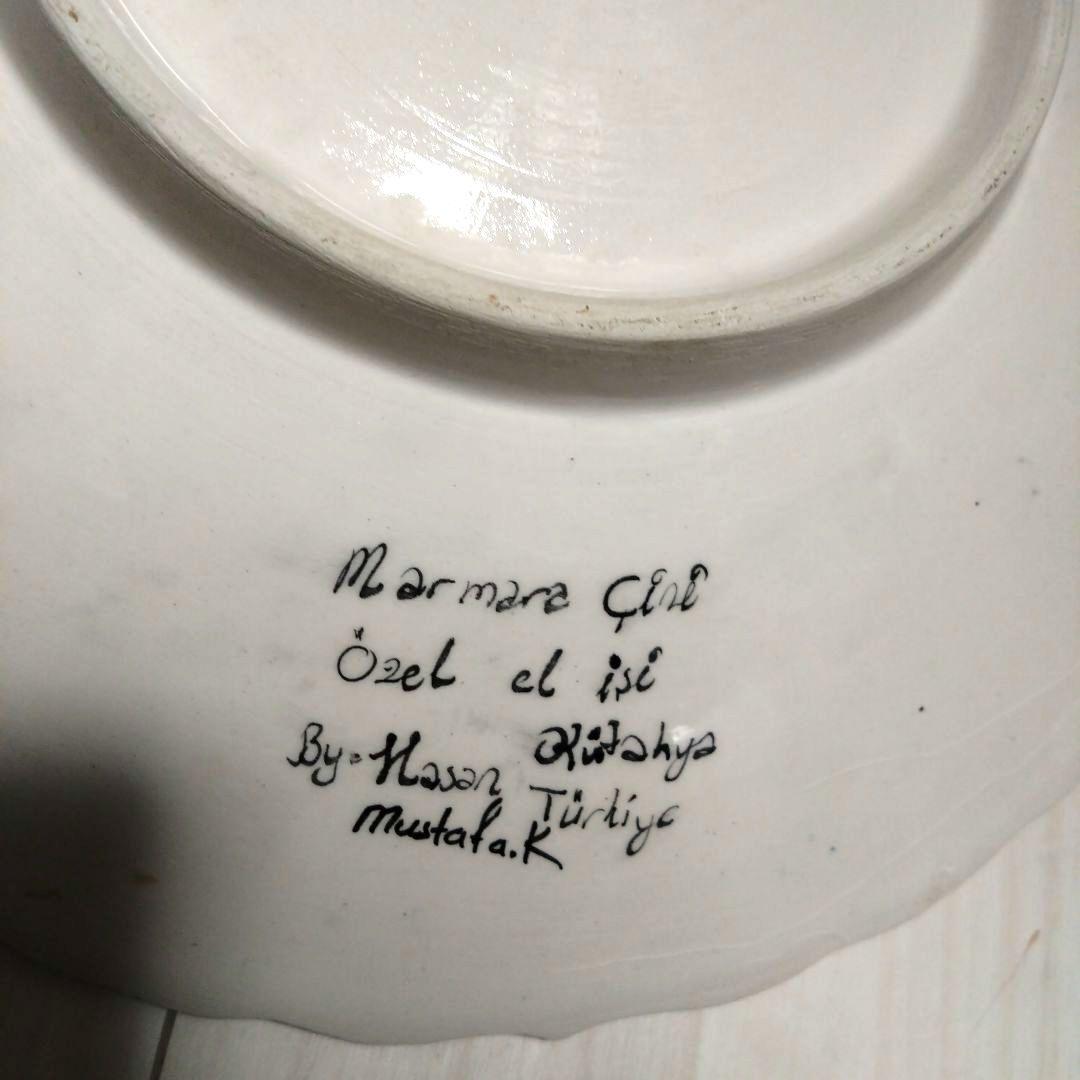 Marmara Çini
Özel el işi
By. Hasan Kütahya
Mustafa.K Türkiye